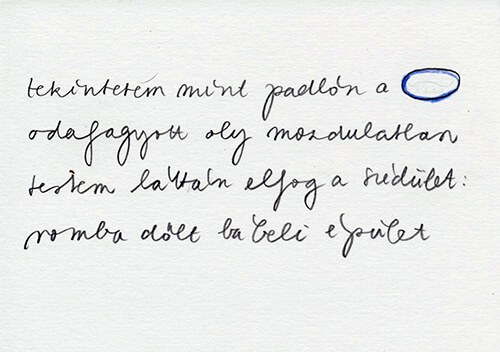 tekintetem mint padlón a
odafagyott oly mozdulatlan
testem láttán elfog a szédület:
romba dőlt bábeli épület